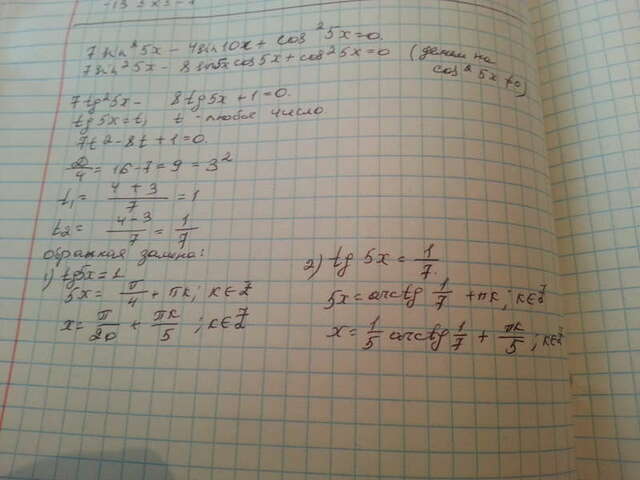 7 sin²5x − 4 sin10x + cos²5x = 0.
7 sin²5x − 8 sin5x cos5x + cos²5x = 0 (делим на
cos²5x ≠ 0)
7tg²5x − 8tg5x + 1 = 0.
tg5x = t, t - любое число
7t² − 8t + 1 = 0.
D/4 = 16 − 7 = 9 = 3²
t₁ = (4 + 3)/7 = 1
t₂ = (4 − 3)/7 = 1/7
обратная замена:
1) tg5x = 1
5x = π/4 + πk; k∈Z
x = π/20 + πk/5; k∈Z
2) tg 5x = 1/7.
5x = arctg 1/7 + πk; k∈Z
x = 1/5 arctg 1/7 + πk/5; k∈Z